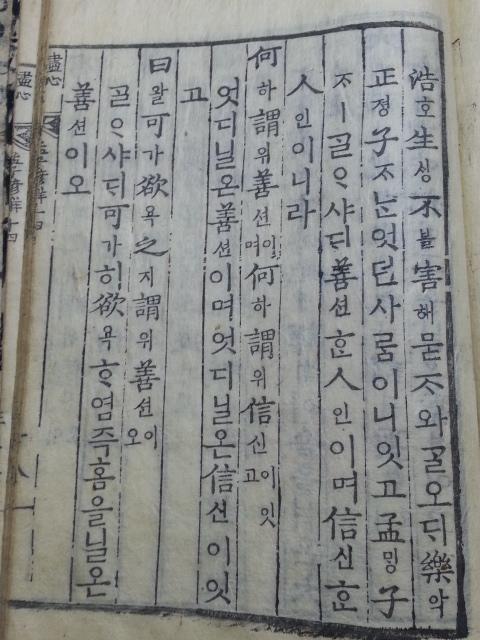 浩호生ᄉᆡᆼ不블害해묻ᄌᆞ와ᄀᆞᆯ오ᄃᆡ樂악
正졍子ᄌᆞᄂᆞᆫ엇던사ᄅᆞᆷ이니잇고孟ᄆᆡᆼ子
ᄌᆞㅣᄀᆞᆯᄋᆞ샤ᄃᆡ善션ᄒᆞᆫ人인이며信신ᄒᆞᆫ
人인이니라
何하謂위善션이며何하謂위信신이잇고
엇디닐온善션이며엇디닐온信신이잇
고
曰왈可가欲욕之지謂위善션이오
ᄀᆞᆯᄋᆞ샤ᄃᆡ可가히欲욕ᄒᆞ염즉홈을닐온
善션이오
盡心
孟子諺解十四
盡心
孟子諺解十四